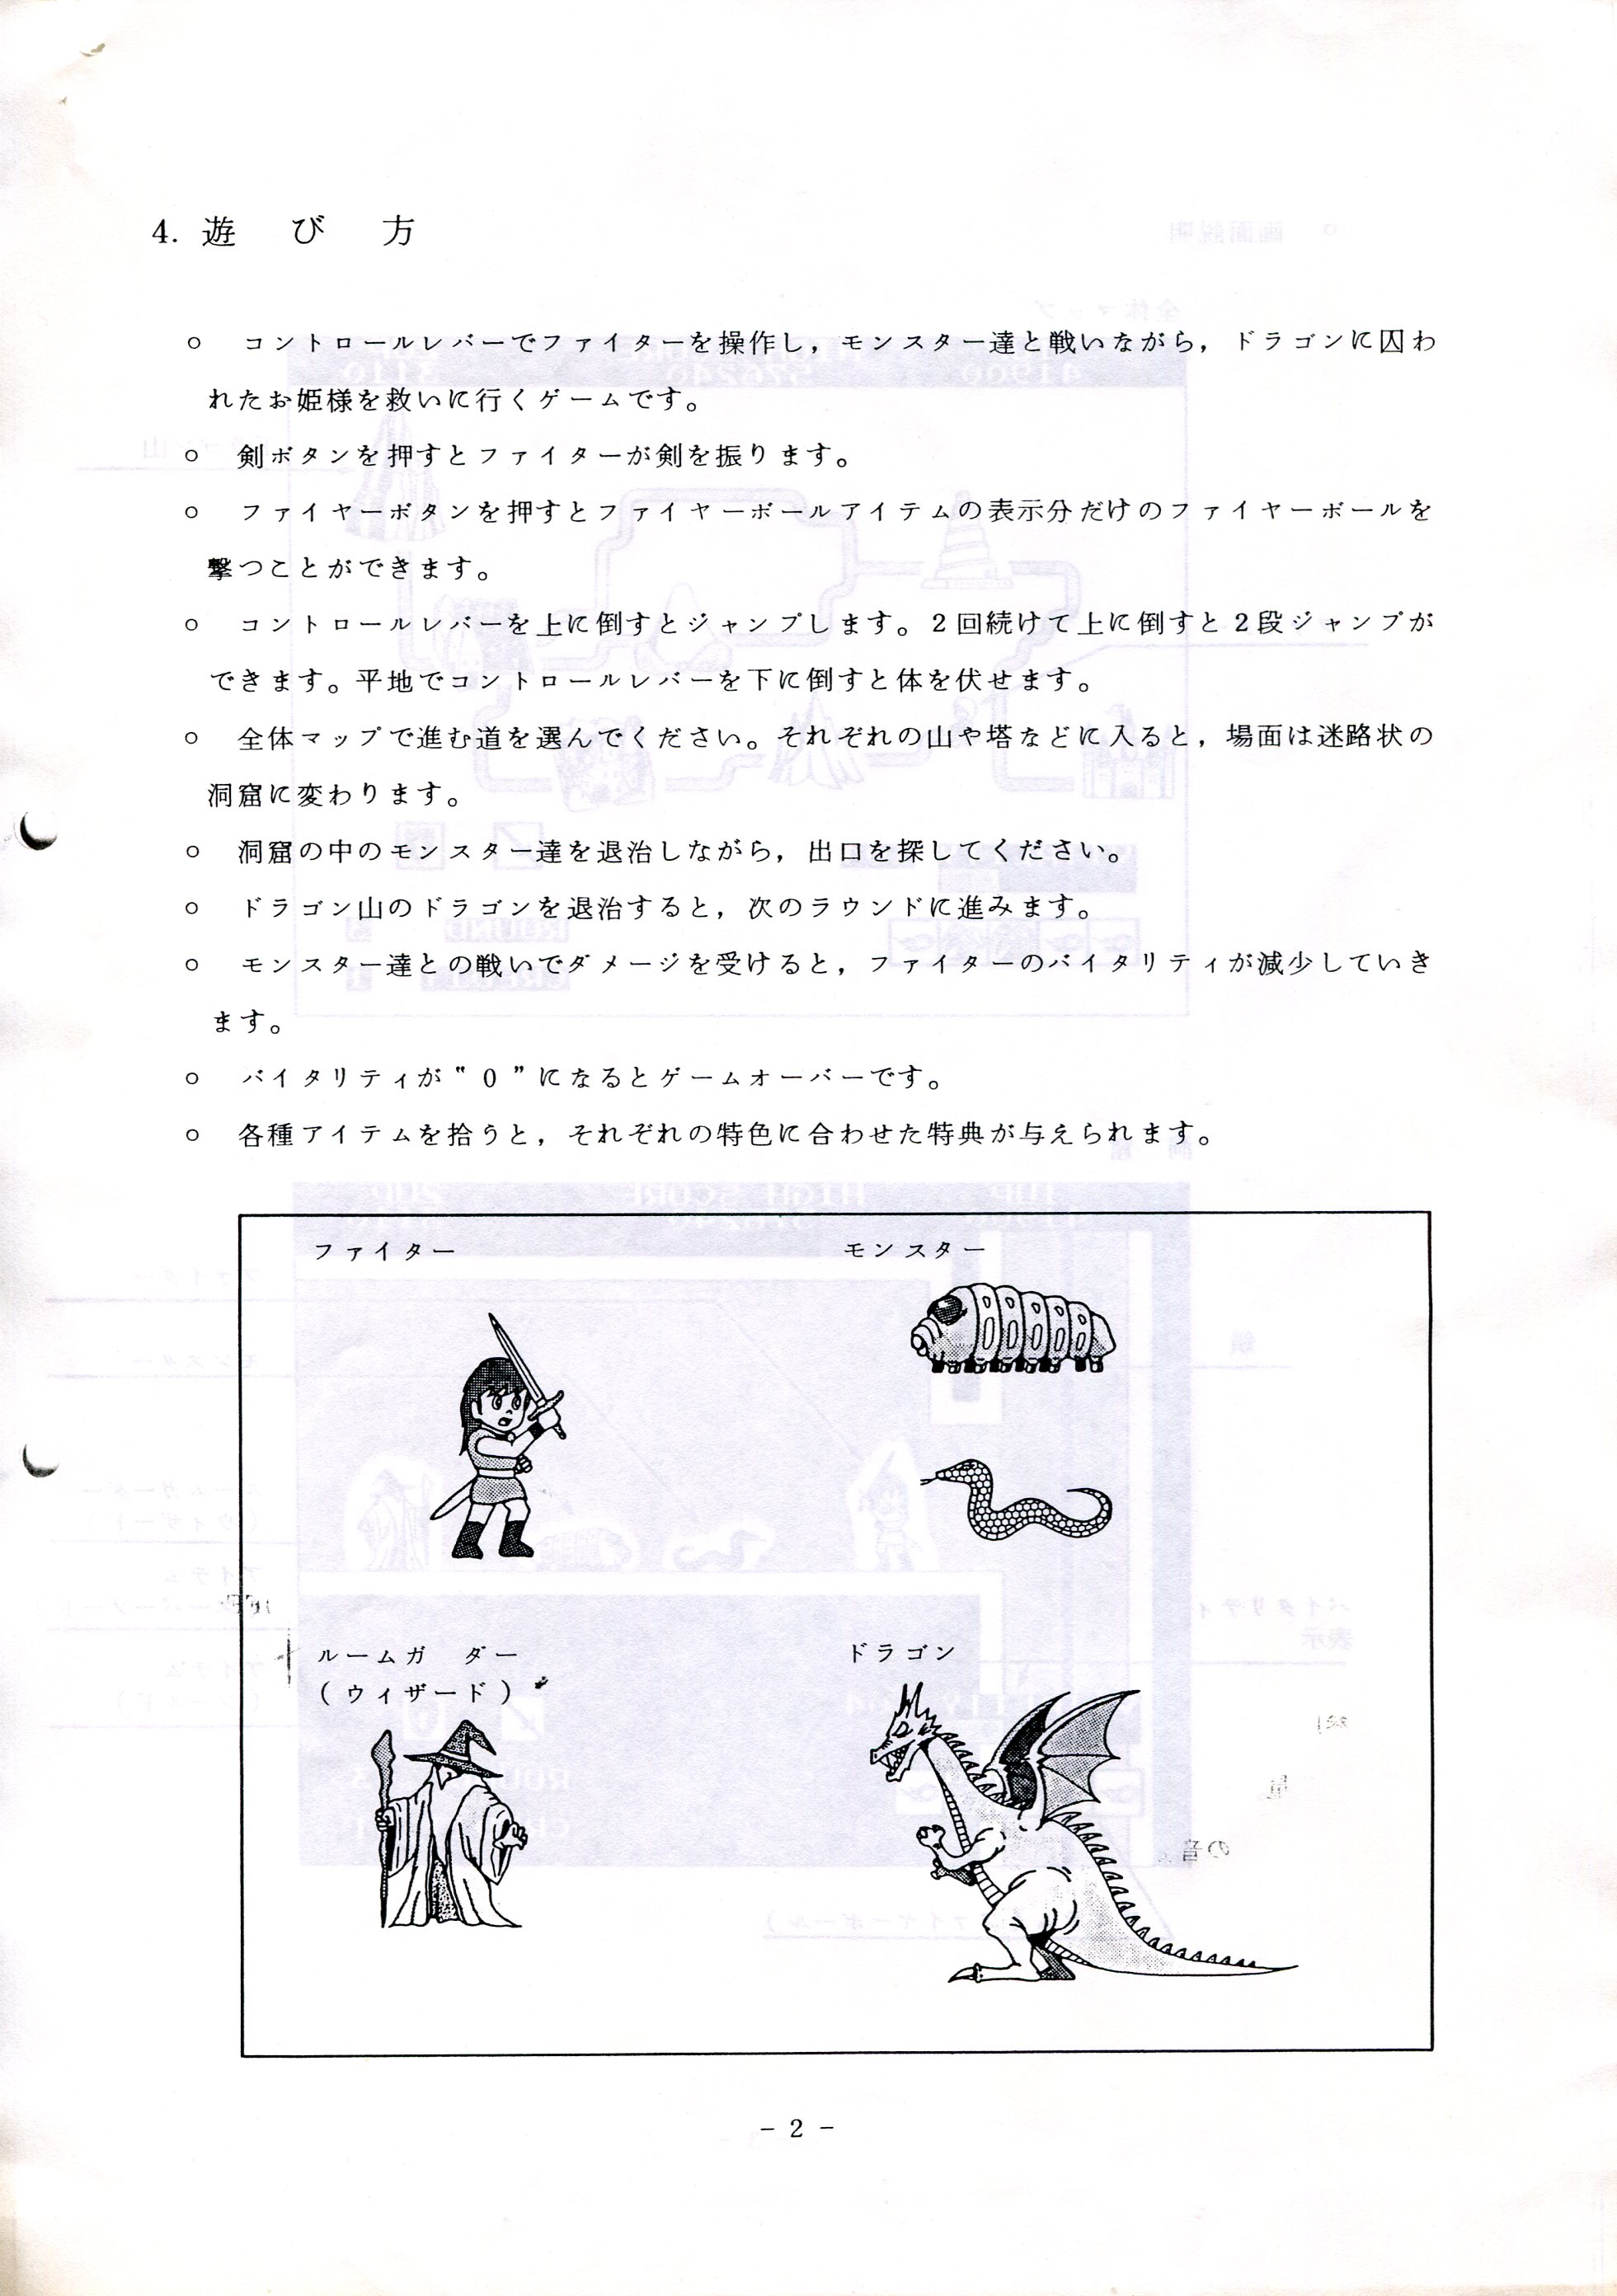 4. 遊び方
○ コントロールレバーでファイターを操作し，モンスター達と戦いながら，ドラゴンに囚わ
れたお姫様を救いに行くゲームです。
○ 剣ボタンを押すとファイターが剣を振ります。
○ ファイヤーボタンを押すとファイヤーボールアイテムの表示分だけのファイヤーボールを
撃つことができます。
○ コントロールレバーを上に倒すとジャンプします。2回続けて上に倒すと2段ジャンプが
できます。平地でコントロールレバーを下に倒すと体を伏せます。
○ 全体マップで進む道を選んでください。それぞれの山や塔などに入ると，場面は迷路状の
洞窟に変わります。
○ 洞窟の中のモンスター達を退治しながら，出口を探してください。
○ ドラゴン山のドラゴンを退治すると，次のラウンドに進みます。
○ モンスター達との戦いでダメージを受けると，ファイターのバイタリティが減少していき
ます。
○ バイタリティが“0”になるとゲームオーバーです。
○ 各種アイテムを拾うと，それぞれの特色に合わせた特典が与えられます。
ファイター
モンスター
ルームガ ダー
(ウィザード)
ドラゴン
- 2 -